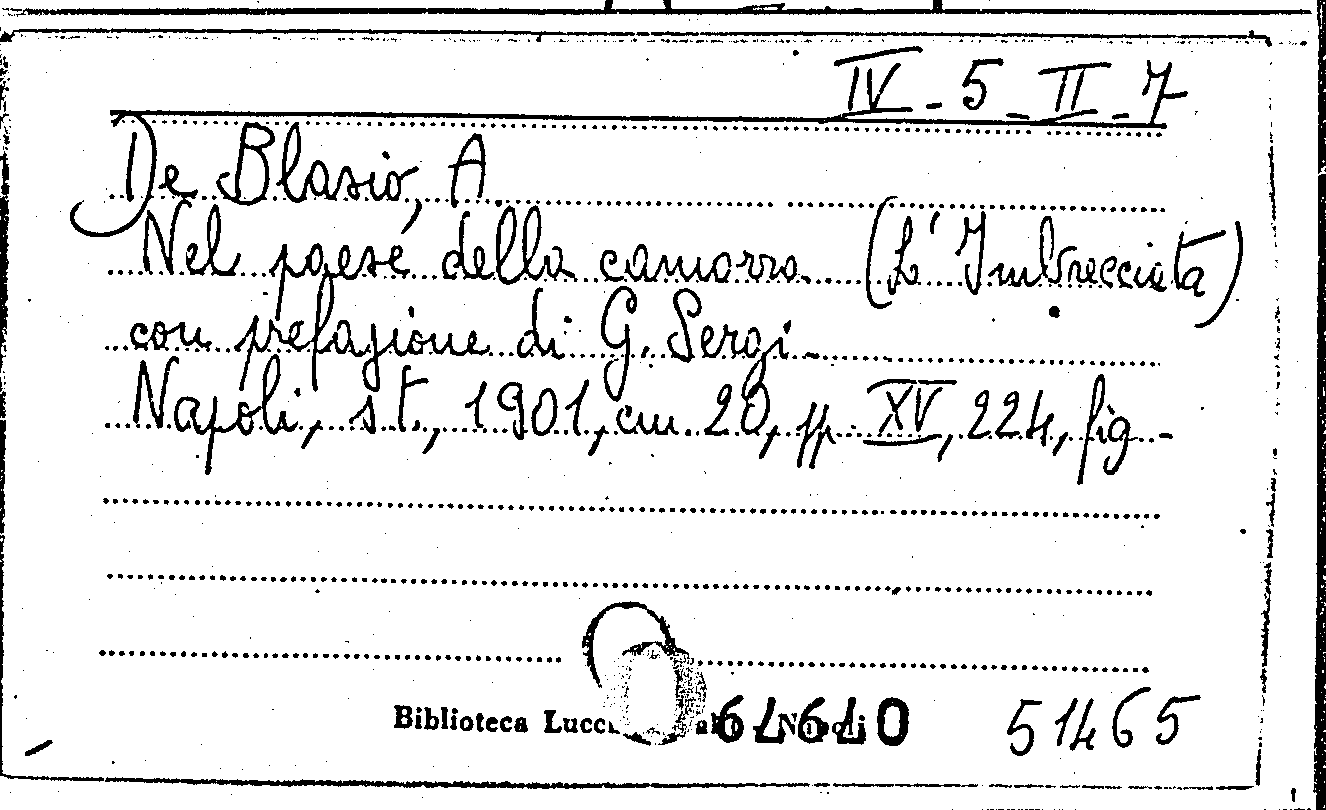 IV - 5 - II - 7
De Blasio, A
Nel paese della camorra (L'Imbrecciata)
con prefazione di G. Sergi -
Napoli, s.t., 1901, cm 20, pp. XV, 224, fig -
Biblioteca Lucc
51465